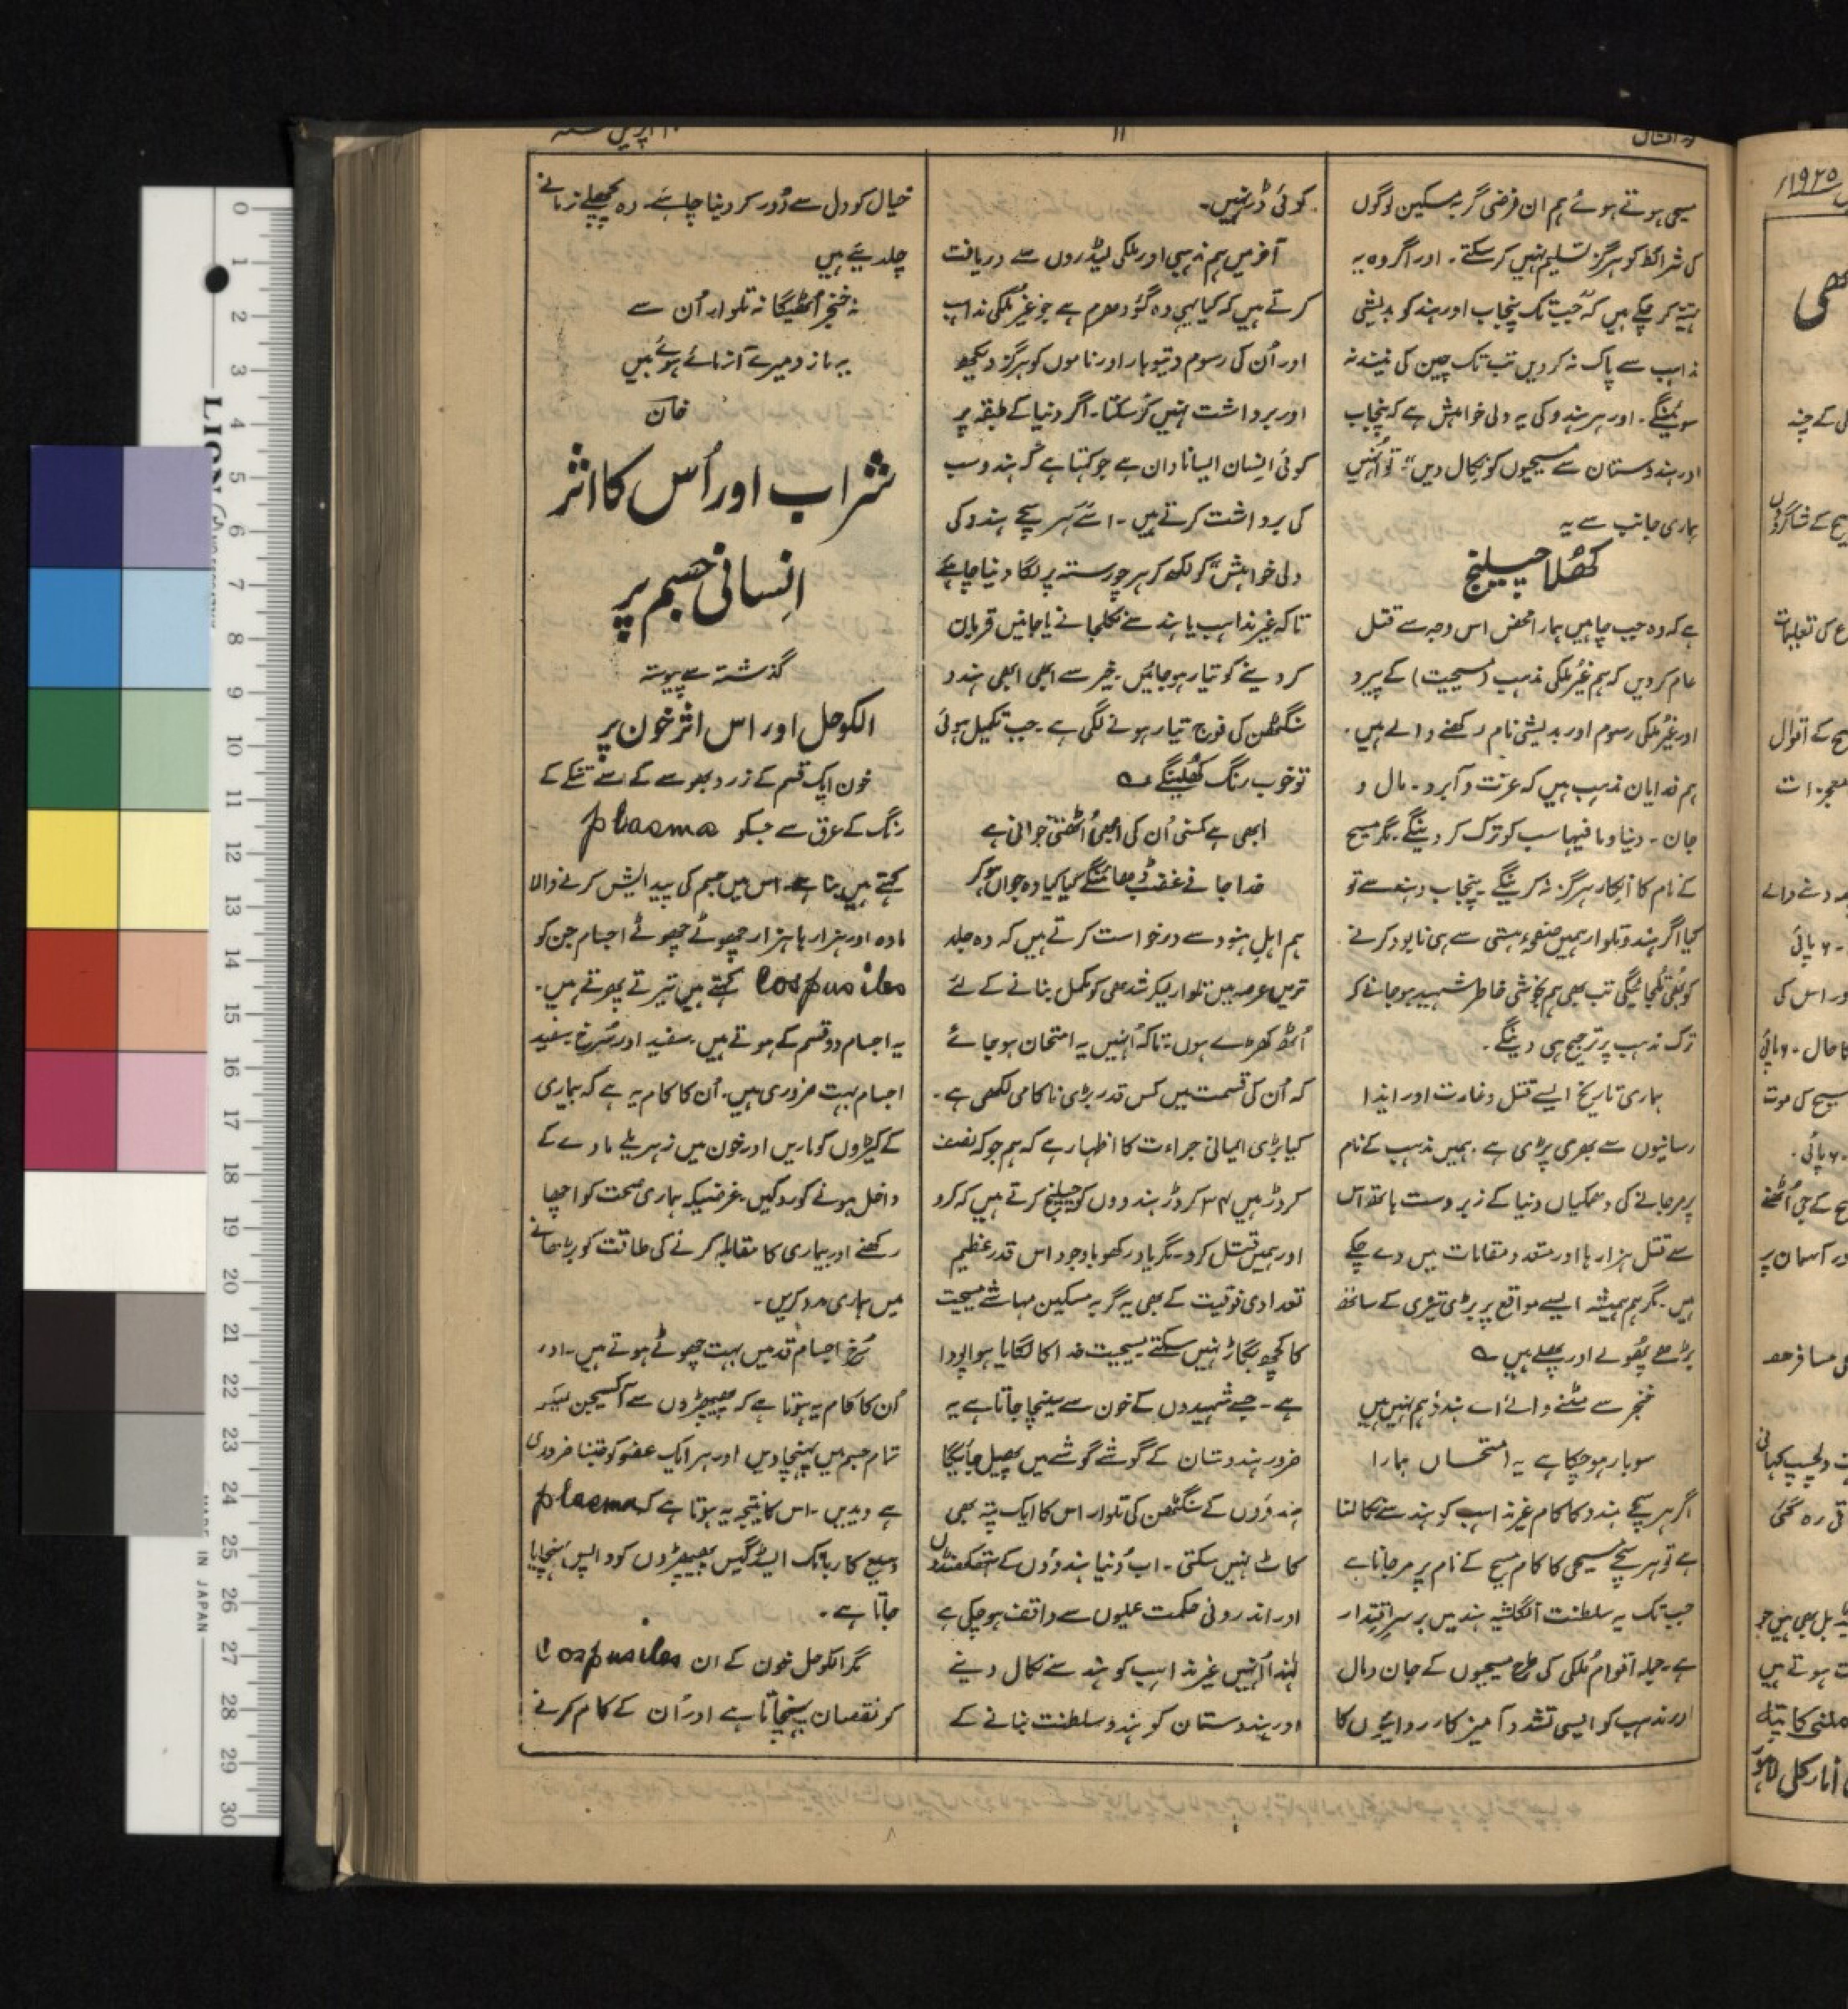 نور افشاں
۱۱
۱۰ اپریل
مسیحی ہوتے ہوئے ہم ان فرضی گربہ مسکین لوگوں
کی شرائط کو ہرگز تسلیم نہیں کرسکتے۔ اور اگر وہ یہ
تہیہ کر چکے ہیں کہ جب تک پنجاب اور ہند کو بدیشی
مذاہب سے پاک نہ کردیں تب تک چین کی نیند نہ
سوئینگے۔ اور ہر ہندو کی یہ دلی خواہش ہے کہ پنجاب
اور ہندوستان سے مسیحیوں کو نکال دیں"۔ تو اُنہیں
ہماری جانب سے یہ
کھُلا چیلنج
ہے کہ وہ جب چاہیں ہمارا محض اس وجہ سے قتل
عام کردیں کہ ہم غیر مُلکی مذہب (مسیحیت) کے پیرو
اور غیر مُلکی رسوم اور بدیشی نام رکھنے والے ہیں۔
ہم فدایان مذہب ہیں کہ عزت و آبرو۔ مال و
جان۔ دنیا و مافیہا سب کو ترک کردینگے۔ مگر مسیح
کے نام کا انکار ہرگز نہ کرینگے۔ پنجاب و ہند سے تو
کیا اگر ہندو تلوار ہمیں صفحۂ ہستی سے ہی نابود کرنے
کو بھی تُلجائیگی تب بھی ہم بخوشی خاطر شہید ہوجانے کو
ترک مذہب پر ترجیح ہی دینگے۔
ہماری تاریخ ایسے قتل و غارت اور ایذا
رسانیوں سے بھری پڑی ہے۔ ہمیں مذہب کے نام
پر مرجانے کی دھمکیاں دنیا کے زبردست ہاتھ اس
سے قبل ہزارہا اور متعدد مقامات میں دے چکے
ہیں۔ مگر ہم ہمیشہ ایسے مواقع پر بڑی تیزی کے ساتھ
بڑھے پھُولے اور پھلے ہیں ؎
خنجر سے مٹنے والے اے ہندؤ ہم نہیں ہیں
سوبار ہوچکا ہے یہ امتحاں ہمارا
اگر ہر سچے ہندو کا کام غیر مذاہب کو ہند سے نکالنا
ہے تو ہر سچے مسیحی کا کام مسیح کے نام پر مرجانا ہے
جب تک یہ سلطنت انگلشیہ ہند میں برسرِ اقتدار
ہے۔ جملہ اقوام مُلکی کی طرح مسیحیوں کے جان و مال
اور مذہب کو ایسی تشدد آمیز کارروائیوں کا
کوئی ڈر نہیں۔
آخر میں ہم مذہبی اور ملکی لیڈروں سے دریافت
کرتے ہیں کہ کیا یہی وہ گؤ دھرم ہے جو غیر مُلکی مذاہب
اور اُن کی رسوم و تیوہار اور ناموں کو ہرگز دیکھ
اور برداشت نہیں کرسکتا۔ اگر دنیا کے طبقہ پر
کوئی انسان ایسا نادان ہے جو کہتا ہے کہ ہندو سب
کی برداشت کرتے ہیں۔ اسے ہر سچے ہندو کی
دلی خواہش" کو لکھ کر ہر چورستہ پر لگا دینا چاہئے
تاکہ غیر مذاہب یا ہند سے نکلجانے یا جانیں قربان
کردینے کو تیار ہوجائیں۔ خیر سے ابھی ابھی ہندو
سنگٹھن کی فوج تیار ہونے لگی ہے۔ جب تکمیل ہوئی
تو خوب رنگ کھلینگے ؎
ابھی ہے کمسنی اُن کی ابھی اُٹھتی جوانی ہے
خدا جانے غضب ڈھائینگے کیا کیا وہ جواں ہوکر
ہم اہل ہنود سے درخواست کرتے ہیں کہ وہ جلد
ترین عرصہ میں تلوار لیکر شدھی کو مکمل بنانے کے لئے
اُٹھ کھڑے ہوں۔ تاکہ اُنہیں یہ امتحان ہوجائے
کہ اُن کی قسمت میں کس قدر بڑی ناکامی لکھی ہے۔
کیا بڑی ایمانی جراءت کا اظہار ہے کہ ہم جو کہ نصف
کروڑ ہیں ۲۴ کروڑ ہندووں کو چیلنج کرتے ہیں کہ کرو
اور ہمیں قتل کرو۔ مگر یاد رکھو باوجود اس قدر عظیم
تعدادی فوقیت کے بھی یہ گربہ مسکین مہاشے مسیحیت
کا کچھ بگاڑ نہیں سکتے۔ مسیحیت خدا کا لگایا ہوا پودا
ہے۔ جسے شہیدوں کے خون سے سینچا جاتا ہے یہ
ضرور ہندوستان کے گوشے گوشے میں پھیل جائیگا
ہندؤوں کے سنگٹھن کی تلوار اس کا ایک پتہ بھی
کاٹ نہیں سکتی۔ اب دُنیا ہندؤوں کے ہتھکنڈوں
اور اندرونی حکمت عملیوں سے واقف ہوچکی ہے
لہٰذا اُنہیں غیر مذاہب کو ہند سے نکال دینے
اور ہندوستان کو ہندو سلطنت بنانے کے
خیال کو دل سے دُور کردینا چاہئے۔ وہ پچھلے زمانے
چلدئیے ہیں
نہ خنجر اُٹھیگا نہ تلوار اُن سے
یہ بازو میرے آزمائے ہوئے ہیں
خان
شراب اور اُس کا اثر
انسانی جسم پر
گذشتہ سے پیوستہ
الکوحل اور اس اثر خون پر
خون ایک قسم کے زرد بھوسے کے سے تنکے کے
رنگ کے عرق سے جسکو plasma
کہتے ہیں بنا ہے۔ اس میں جسم کی پیدایش کرنے والا
مادہ اور ہزارہا ہزار چھوٹے چھوٹے اجسام جن کو
Cospusiles کہتے ہیں تیرتے پھرتے ہیں۔
یہ اجسام دو قسم کے ہوتے ہیں۔ سفید اور سُرخ۔ سفید
اجسام بہت ضروری ہیں۔ اُن کا کام یہ ہے کہ بیماری
کے کیڑوں کو ماریں اور خون میں زہریلے مادے کے
داخل ہونے کو روکیں۔ غرضیکہ ہماری صحت کو اچھا
رکھنے اور بیماری کا مقابلہ کرنے کی طاقت کو بڑھانے
میں ہماری مدد کریں۔
سُرخ اجسام قد میں بہت چھوٹے ہوتے ہیں۔ اور
اُن کا کام یہ ہوتا ہے کہ پھیپھڑوں سے آکسیجن لیکر
تمام جسم میں پہنچا دیں اور ہر ایک عضو کو جتنا ضروری
ہے دیدیں۔ اس کا نتیجہ یہ ہوتا ہے کہ plasma
وسیع کاربانک ایسڈ گیس پھیپھڑوں کو واپس پہنچایا
جاتا ہے۔
مگر الکوحل خون کے ان Cospusiles
کو نقصان پہنچاتا ہے اور اُن کے کام کرنے
۱۹۲۵ء
LION
MADE IN JAPAN
0
1
2
3
4
5
6
7
8
9
10
11
12
13
14
15
16
17
18
19
20
21
22
23
24
25
26
27
28
29
30